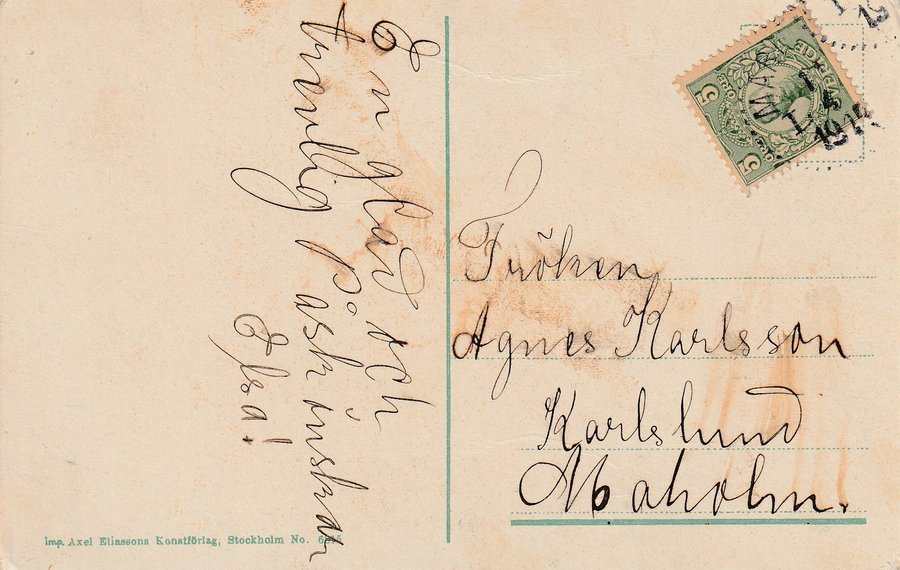 En glad och
trevlig Påsk önskar
Elsa!
Fröken
Agnes Karlsson
Karlslund
Maholm.
SVERIGE
5 ÖRE 5
1 4
Imp. Axel Eliassons Konstförlag, Stockholm No.